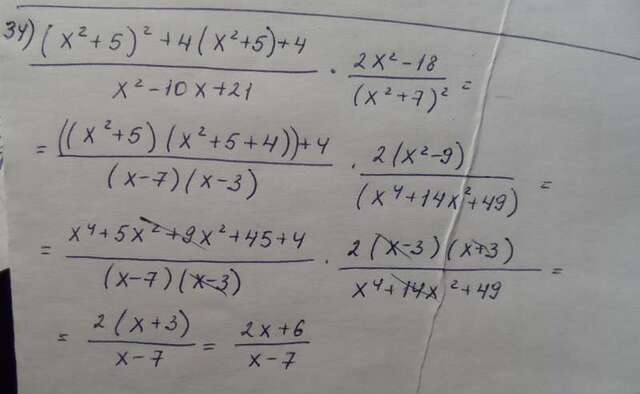 34) ((x²+5)² + 4(x²+5)+4)/(x² - 10x + 21) · (2x² - 18)/((x²+7)²) =
= (((x²+5)(x²+5+4))+4)/((x-7)(x-3)) · (2(x²-9))/((x⁴+14x²+49)) =
= (x⁴+5x²+9x²+45+4)/((x-7)(x-3)) · (2(x-3)(x+3))/(x⁴+14x²+49) =
= (2(x+3))/(x-7) = (2x+6)/(x-7)